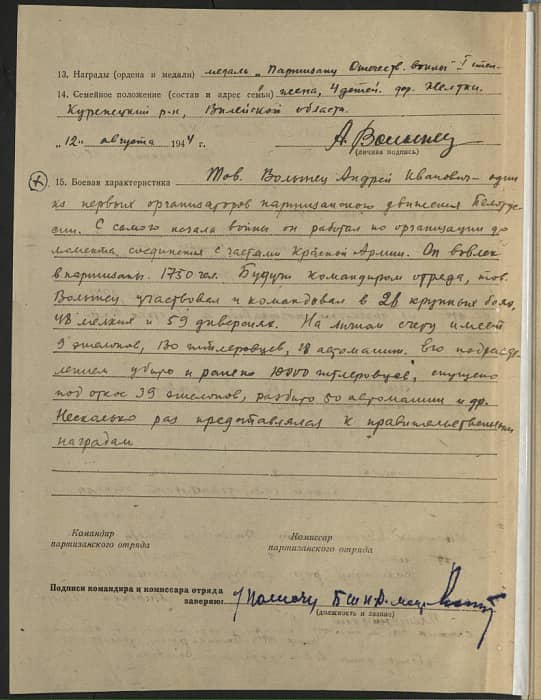 13. Награды (ордена и медали) медаль „Партизану Отечеств. войны" I степ.
14. Семейное положение (состав и адрес семьи) жена, 4 детей. дер. Желтки
Куренецкий р-н, Вилейской области.
„12" августа 1944 г. А. Волынец
(личная подпись)
15. Боевая характеристика Тов. Волынец Андрей Иванович – один
из первых организаторов партизанского движения Белорус-
сии. С самого начала войны он работал по организации до
момента соединения с частями Красной Армии. Он вовлек
в партизаны 1750 чел. Будучи командиром отряда, тов.
Волынец участвовал и командовал в 28 крупных боях,
48 мелких и 59 диверсиях. На личном счету имеет
9 эшелонов, 130 гитлеровцев, 18 автомашин. Его подразде-
лением убито и ранено 10000 гитлеровцев, спущено
под откос 39 эшелонов, разбито 50 автомашин и др.
Несколько раз представлялся к правительственным
наградам
Командир
партизанского отряда
Комиссар
партизанского отряда
Подписи командира и комиссара отряда
заверяю:
(должность и звание)